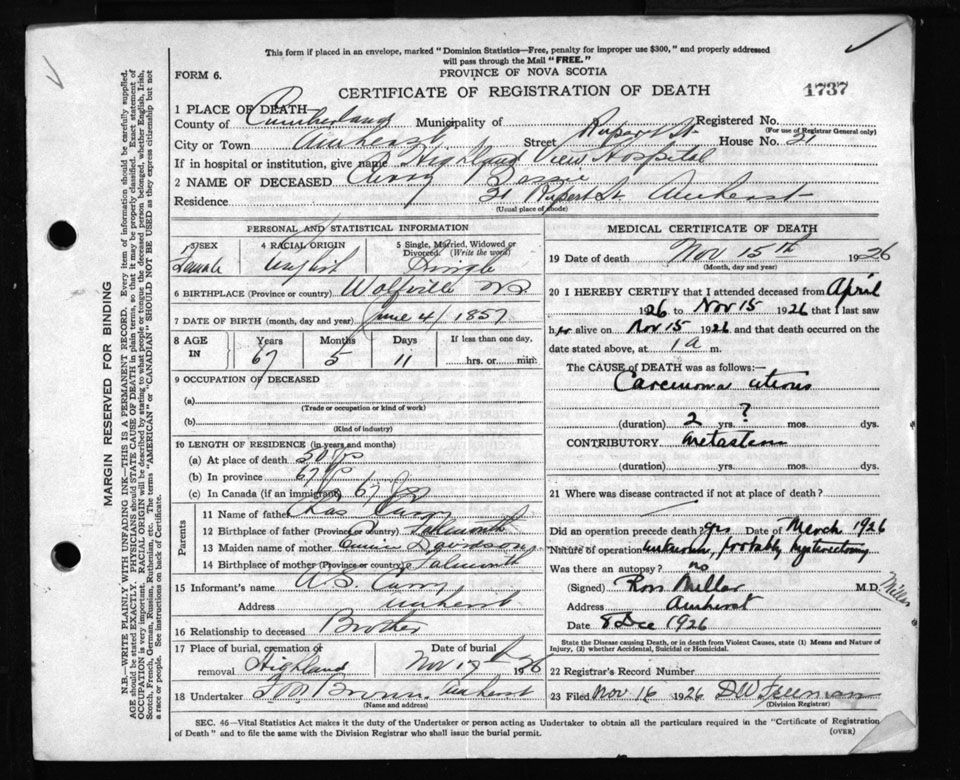 This form if placed in an envelope, marked "Dominion Statistics—Free, penalty for improper use $300," and properly addressed
will pass through the Mail "FREE."
FORM 6.
PROVINCE OF NOVA SCOTIA
CERTIFICATE OF REGISTRATION OF DEATH
1737
1 PLACE OF DEATH
County of Cumberland Municipality of Registered No.
(For use of Registrar General only)
City or Town Amherst Street Rupert St House No. 31
If in hospital or institution, give name Highland View Hospital
2 NAME OF DECEASED Curry Bessie
Residence 31 Rupert St. Amherst
(Usual place of abode)
PERSONAL AND STATISTICAL INFORMATION
3 SEX 4 RACIAL ORIGIN 5 Single, Married, Widowed or Divorced. (Write the word)
Female English Single
6 BIRTHPLACE (Province or country) Wolfville N.S.
7 DATE OF BIRTH (month, day and year) June 4/ 1857
8 AGE IN Years Months Days If less than one day,
67 5 11 hrs. or min.
9 OCCUPATION OF DECEASED
(a)
(Trade or occupation or kind of work)
(b)
(Kind of industry)
10 LENGTH OF RESIDENCE (in years and months)
(a) At place of death 50 yrs
(b) In province 67 yrs
(c) In Canada (if an immigrant) 67
Parents
11 Name of father Chas Curry
12 Birthplace of father (Province or country) Falmouth
13 Maiden name of mother Davidson
14 Birthplace of mother (Province or country) Falmouth
15 Informant's name Curry
Address Amherst
16 Relationship to deceased Brother
17 Place of burial, cremation or removal Highland Date of burial Nov 17 1926
18 Undertaker Brown. Amherst
(Name and address)
MEDICAL CERTIFICATE OF DEATH
19 Date of death Nov 15th 1926
(Month, day and year)
20 I HEREBY CERTIFY that I attended deceased from April
1926 to Nov 15 1926 that I last saw
her alive on Nov 15 1926 and that death occurred on the
date stated above, at 1 a m.
The CAUSE of DEATH was as follows:—
Carcinoma uterus
?
(duration) 2 yrs. mos. dys.
CONTRIBUTORY metastasis
(duration) yrs. mos. dys.
21 Where was disease contracted if not at place of death?
Did an operation precede death? yes Date of March 1926
Nature of operation unknown, probably hysterectomy
Was there an autopsy? no
(Signed) Ross Millar M.D.
Miller
Address Amherst
Date 8 Dec 1926
State the Disease causing Death, or in death from Violent Causes, state (1) Means and Nature of
Injury, (2) whether Accidental, Suicidal or Homicidal.
22 Registrar's Record Number
23 Filed Nov 16 1926 D W Freeman
(Division Registrar)
SEC. 46—Vital Statistics Act makes it the duty of the Undertaker or person acting as Undertaker to obtain all the particulars required in the "Certificate of Registration
of Death" and to file the same with the Division Registrar who shall issue the burial permit.
(OVER)
MARGIN RESERVED FOR BINDING
N.B.—WRITE PLAINLY WITH UNFADING INK—THIS IS A PERMANENT RECORD. Every item of information should be carefully supplied.
AGE should be stated EXACTLY. PHYSICIANS should STATE CAUSE OF DEATH in plain terms, so that it may be properly classified. Exact statement of
OCCUPATION is very important. RACIAL ORIGIN will be described by stating to what people or tongue the deceased person belonged, whether English, Irish,
Scotch, French, German, Russian, Ruthenian, etc. The terms "AMERICAN" or "CANADIAN" SHOULD NOT BE USED as they express citizenship but not
a race or people. See instructions on back of Certificate.